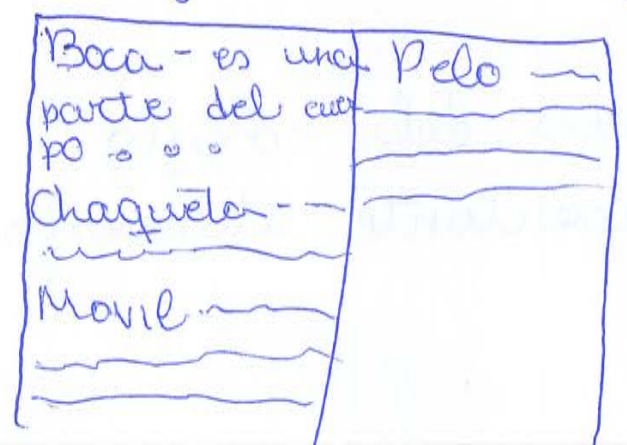 Boca - es una
parte del cuer
po o o o
Chaqueta - -
Movil
Pelo